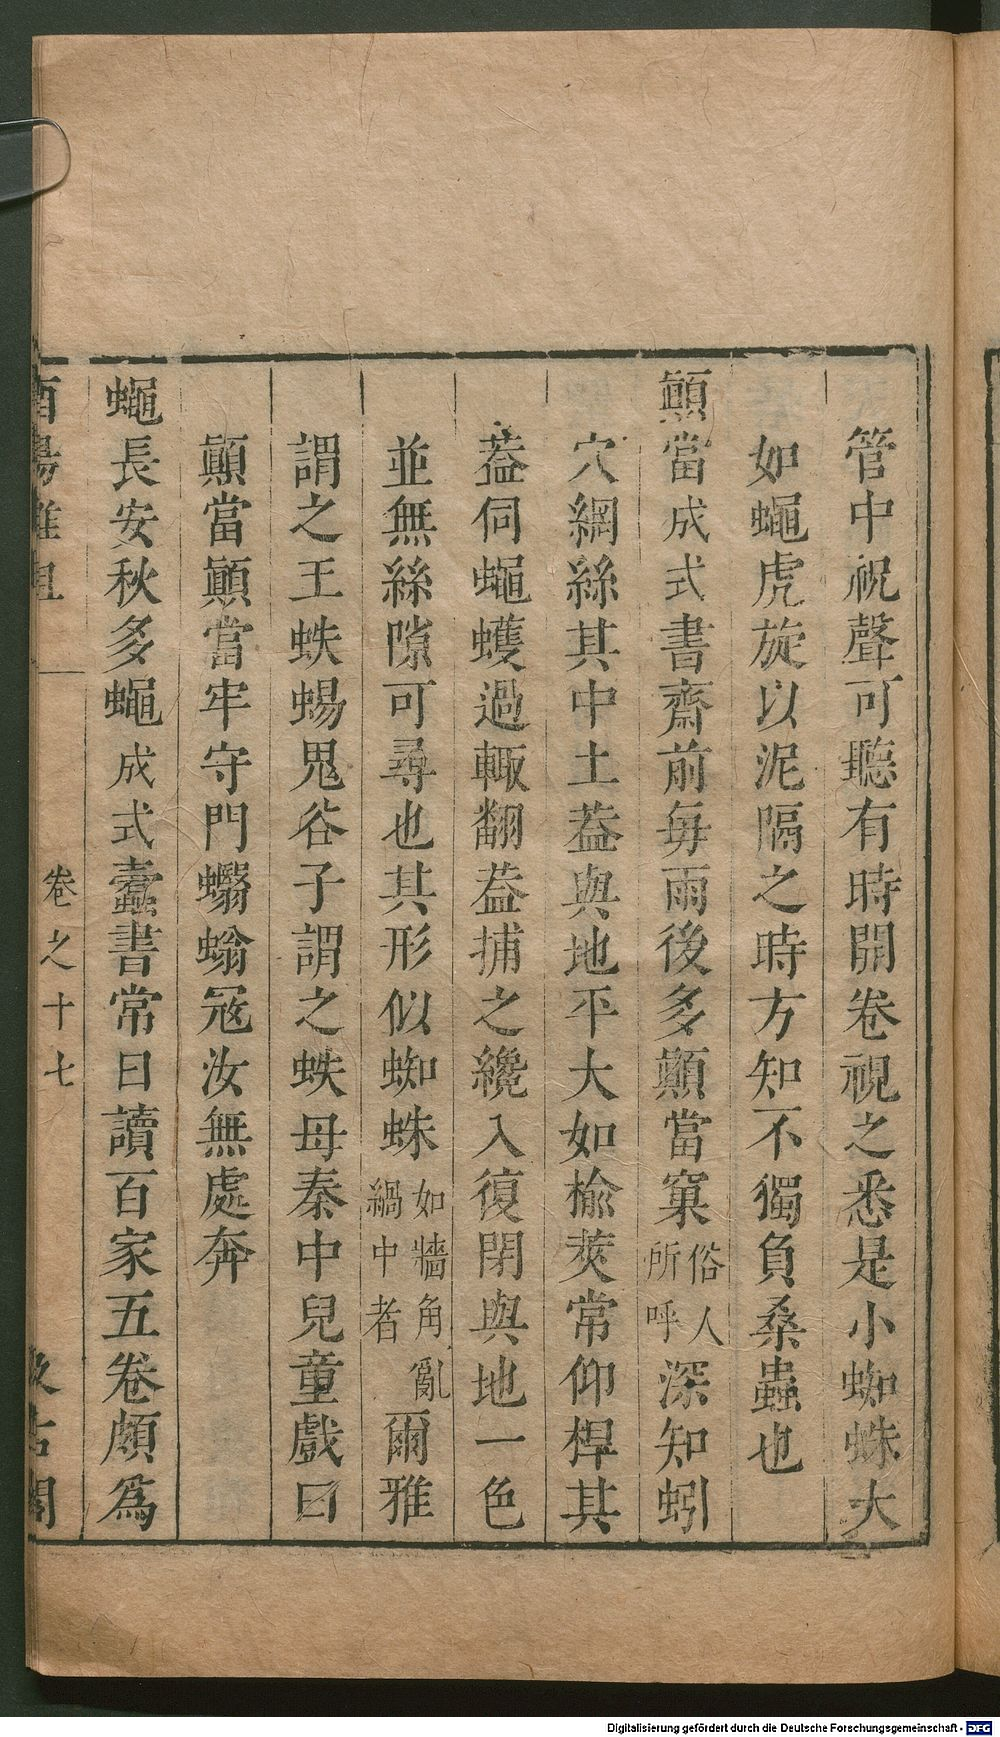 管中祝聲可聽有時開卷視之悉是小蜘蛛大
如蠅虎旋以泥隔之時方知不獨負桑蟲也
顚當成式書齋前每雨後多顚當窠俗人所呼深知蚓
穴網絲其中土葢與地平大如楡莢常仰桿其
葢伺蠅蠖過輙翻葢捕之纔入復閉與地一色
並無絲隙可尋也其形似蜘蛛如牆角亂緺中者爾雅
謂之王蛈蜴鬼谷子謂之蛈母秦中兒童戲曰
顚當顚當牢守門蠮螉冦汝無處奔
蠅長安秋多蠅成式蠧書常日讀百家五卷頗爲
酉陽雜俎
卷之十七
汲古閣
Digitalisierung gefördert durch die Deutsche Forschungsgemeinschaft - DFG